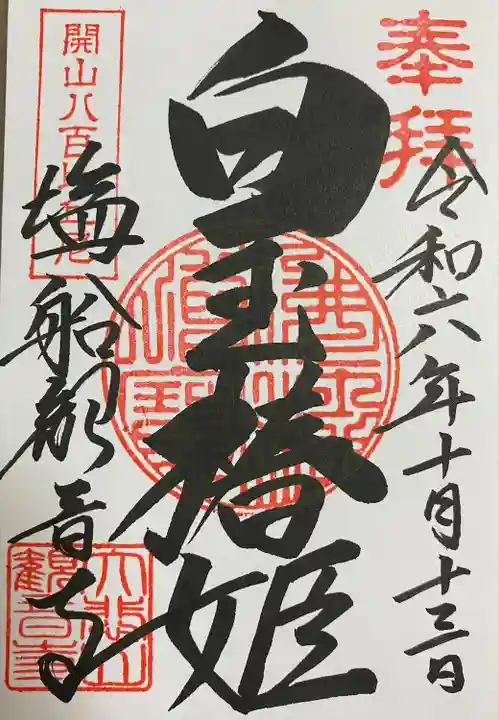 奉拝
令和六年十月十三日
白玉椿姫
開山八百比丘尼
塩船観音寺